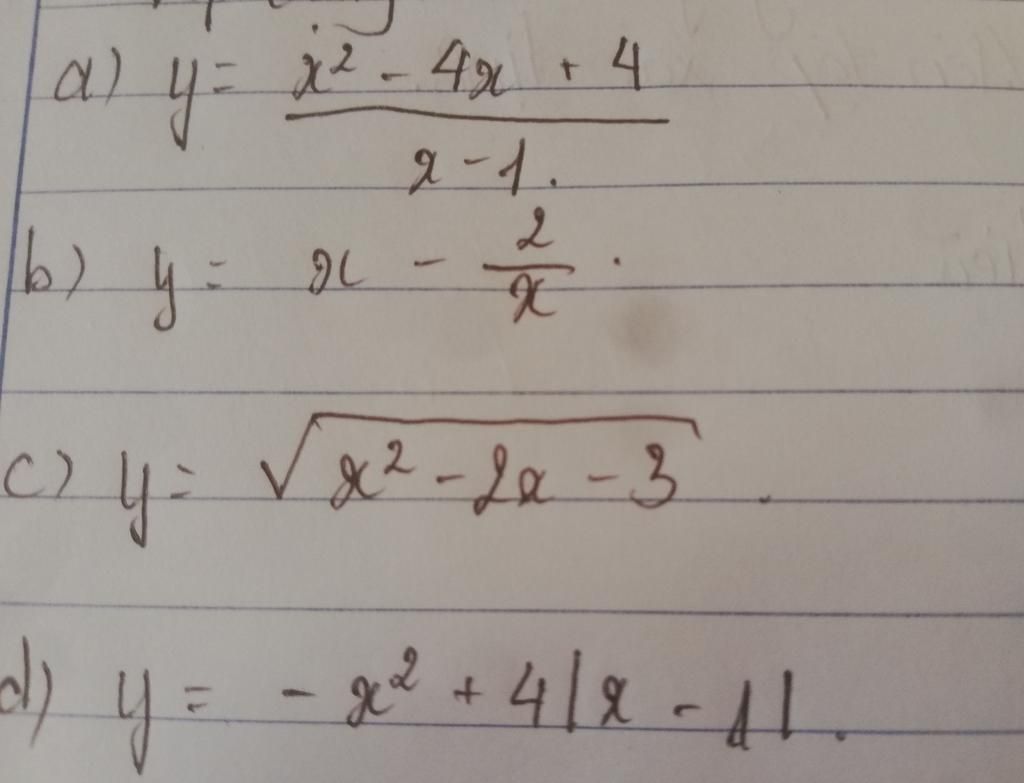 a) y = x² - 4x + 4 / x - 1.
b) y = x - 2/x.
c) y = √(x² - 2x - 3).
d) y = - x² + 4|x - 1|.